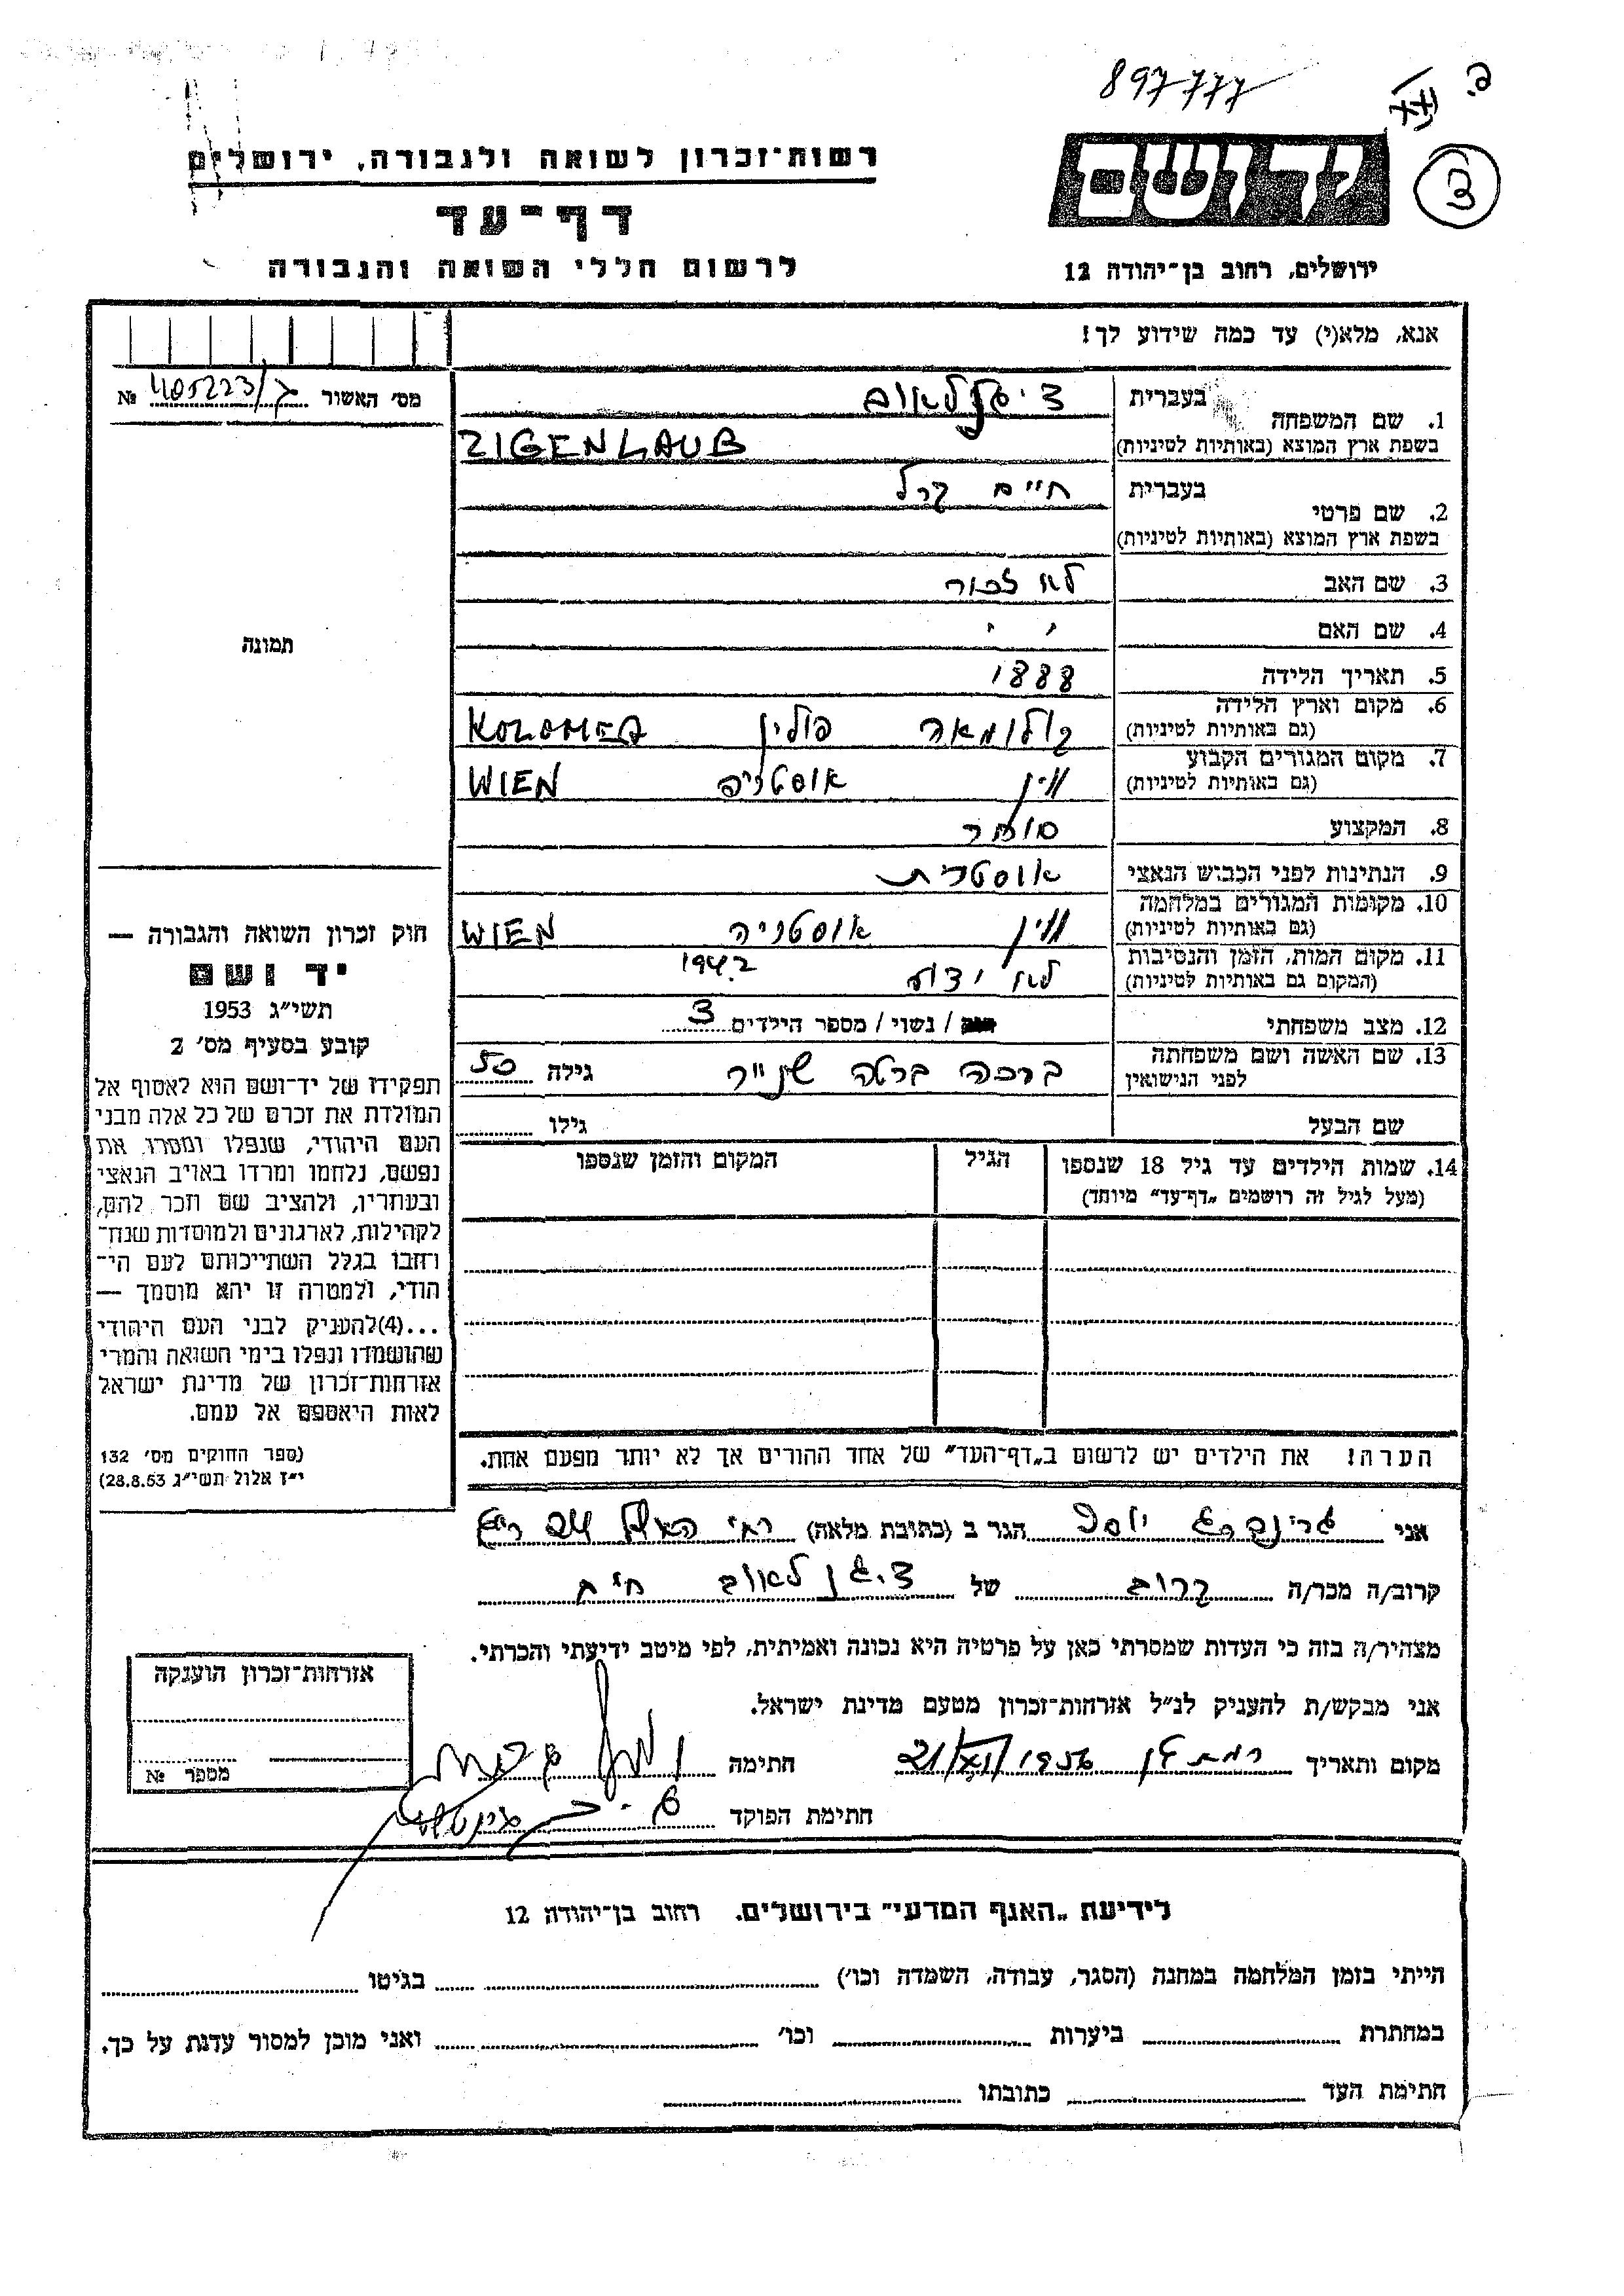 897777
רשות־זכרון לשואה ולגבורה, ירושלים
יד ושם
3
דף־עד
לרשום חללי השואה והגבורה
ירושלים, רחוב בן־יהודה 12
אנא, מלא(י) עד כמה שידוע לך!
מס׳ האשור № 405223/ג
1. שם המשפחה
בעברית
ציגנלאוב
בשפת ארץ המוצא (באותיות לטיניות)
ZIGENLAUB
2. שם פרטי
בעברית
חיים קרל
בשפת ארץ המוצא (באותיות לטיניות)
3. שם האב לא זכור
4. שם האם ״ ״
תמונה
5. תאריך הלידה 1888
6. מקום וארץ הלידה
(גם באותיות לטיניות)
קולומאה פולין KOLOMEA
7. מקום המגורים הקבוע
(גם באותיות לטיניות)
ווין אוסטריה WIEN
8. המקצוע סוחר
9. הנתינות לפני הכבוש הנאצי אוסטרית
10. מקומות המגורים במלחמה
(גם באותיות לטיניות)
ווין אוסטריה WIEN
11. מקום המות, הזמן והנסיבות
(המקום גם באותיות לטיניות)
לא ידוע 1942
12. מצב משפחתי רווק / נשוי / מספר הילדים 3
13. שם האשה ושם משפחתה
לפני הנישואין
ברכה ברטה גילה 50
שם הבעל גילו
14. שמות הילדים עד גיל 18 שנספו
(מעל לגיל זה רושמים „דף־עד״ מיוחד)
הגיל
המקום והזמן שנספו
חוק זכרון השואה והגבורה —
יד ושם
תשי״ג 1953
קובע בסעיף מס׳ 2
תפקידו של יד־ושם הוא לאסוף אל
המולדת את זכרם של כל אלה מבני
העם היהודי, שנפלו ומסרו את
נפשם, נלחמו ומרדו באויב הנאצי
ובעוזריו, ולהציב שם וזכר להם,
לקהילות, לארגונים ולמוסדות שנח־
רחבו בגלל השתייכותם לעם הי־
הודי, ולמטרה זו יהא מוסמך —
...(4)להעניק לבני העם היהודי
שהושמדו ונפלו בימי השואה והמרי
אזרחות־זכרון של מדינת ישראל
לאות היאספם אל עמם.
(ספר החוקים מס׳ 132
י״ז אלול תשי״ג 28.8.53)
הערה! את הילדים יש לרשום ב„דף־העד״ של אחד ההורים אך לא יותר מפעם אחת.
אני גרינברג יוסף הגר ב (כתובת מלאה)
קרוב/ה מכר/ה קרוב של ציגן לאוב חיים
מצהיר/ה בזה כי העדות שמסרתי כאן על פרטיה היא נכונה ואמיתית, לפי מיטב ידיעתי והכרתי.
אני מבקש/ת להעניק לנ״ל אזרחות־זכרון מטעם מדינת ישראל.
מקום ותאריך רמת גן 21/XI/1956 חתימה
חתימת הפוקד
אזרחות־זכרון הוענקה
מספר №
לידיעת „האגף המדעי״ בירושלים. רחוב בן־יהודה 12
הייתי בזמן המלחמה במחנה (הסגר, עבודה, השמדה וכו׳) בגיטו
במחתרת ביערות וכו׳ ואני מוכן למסור עדות על כך.
חתימת העד כתובתו